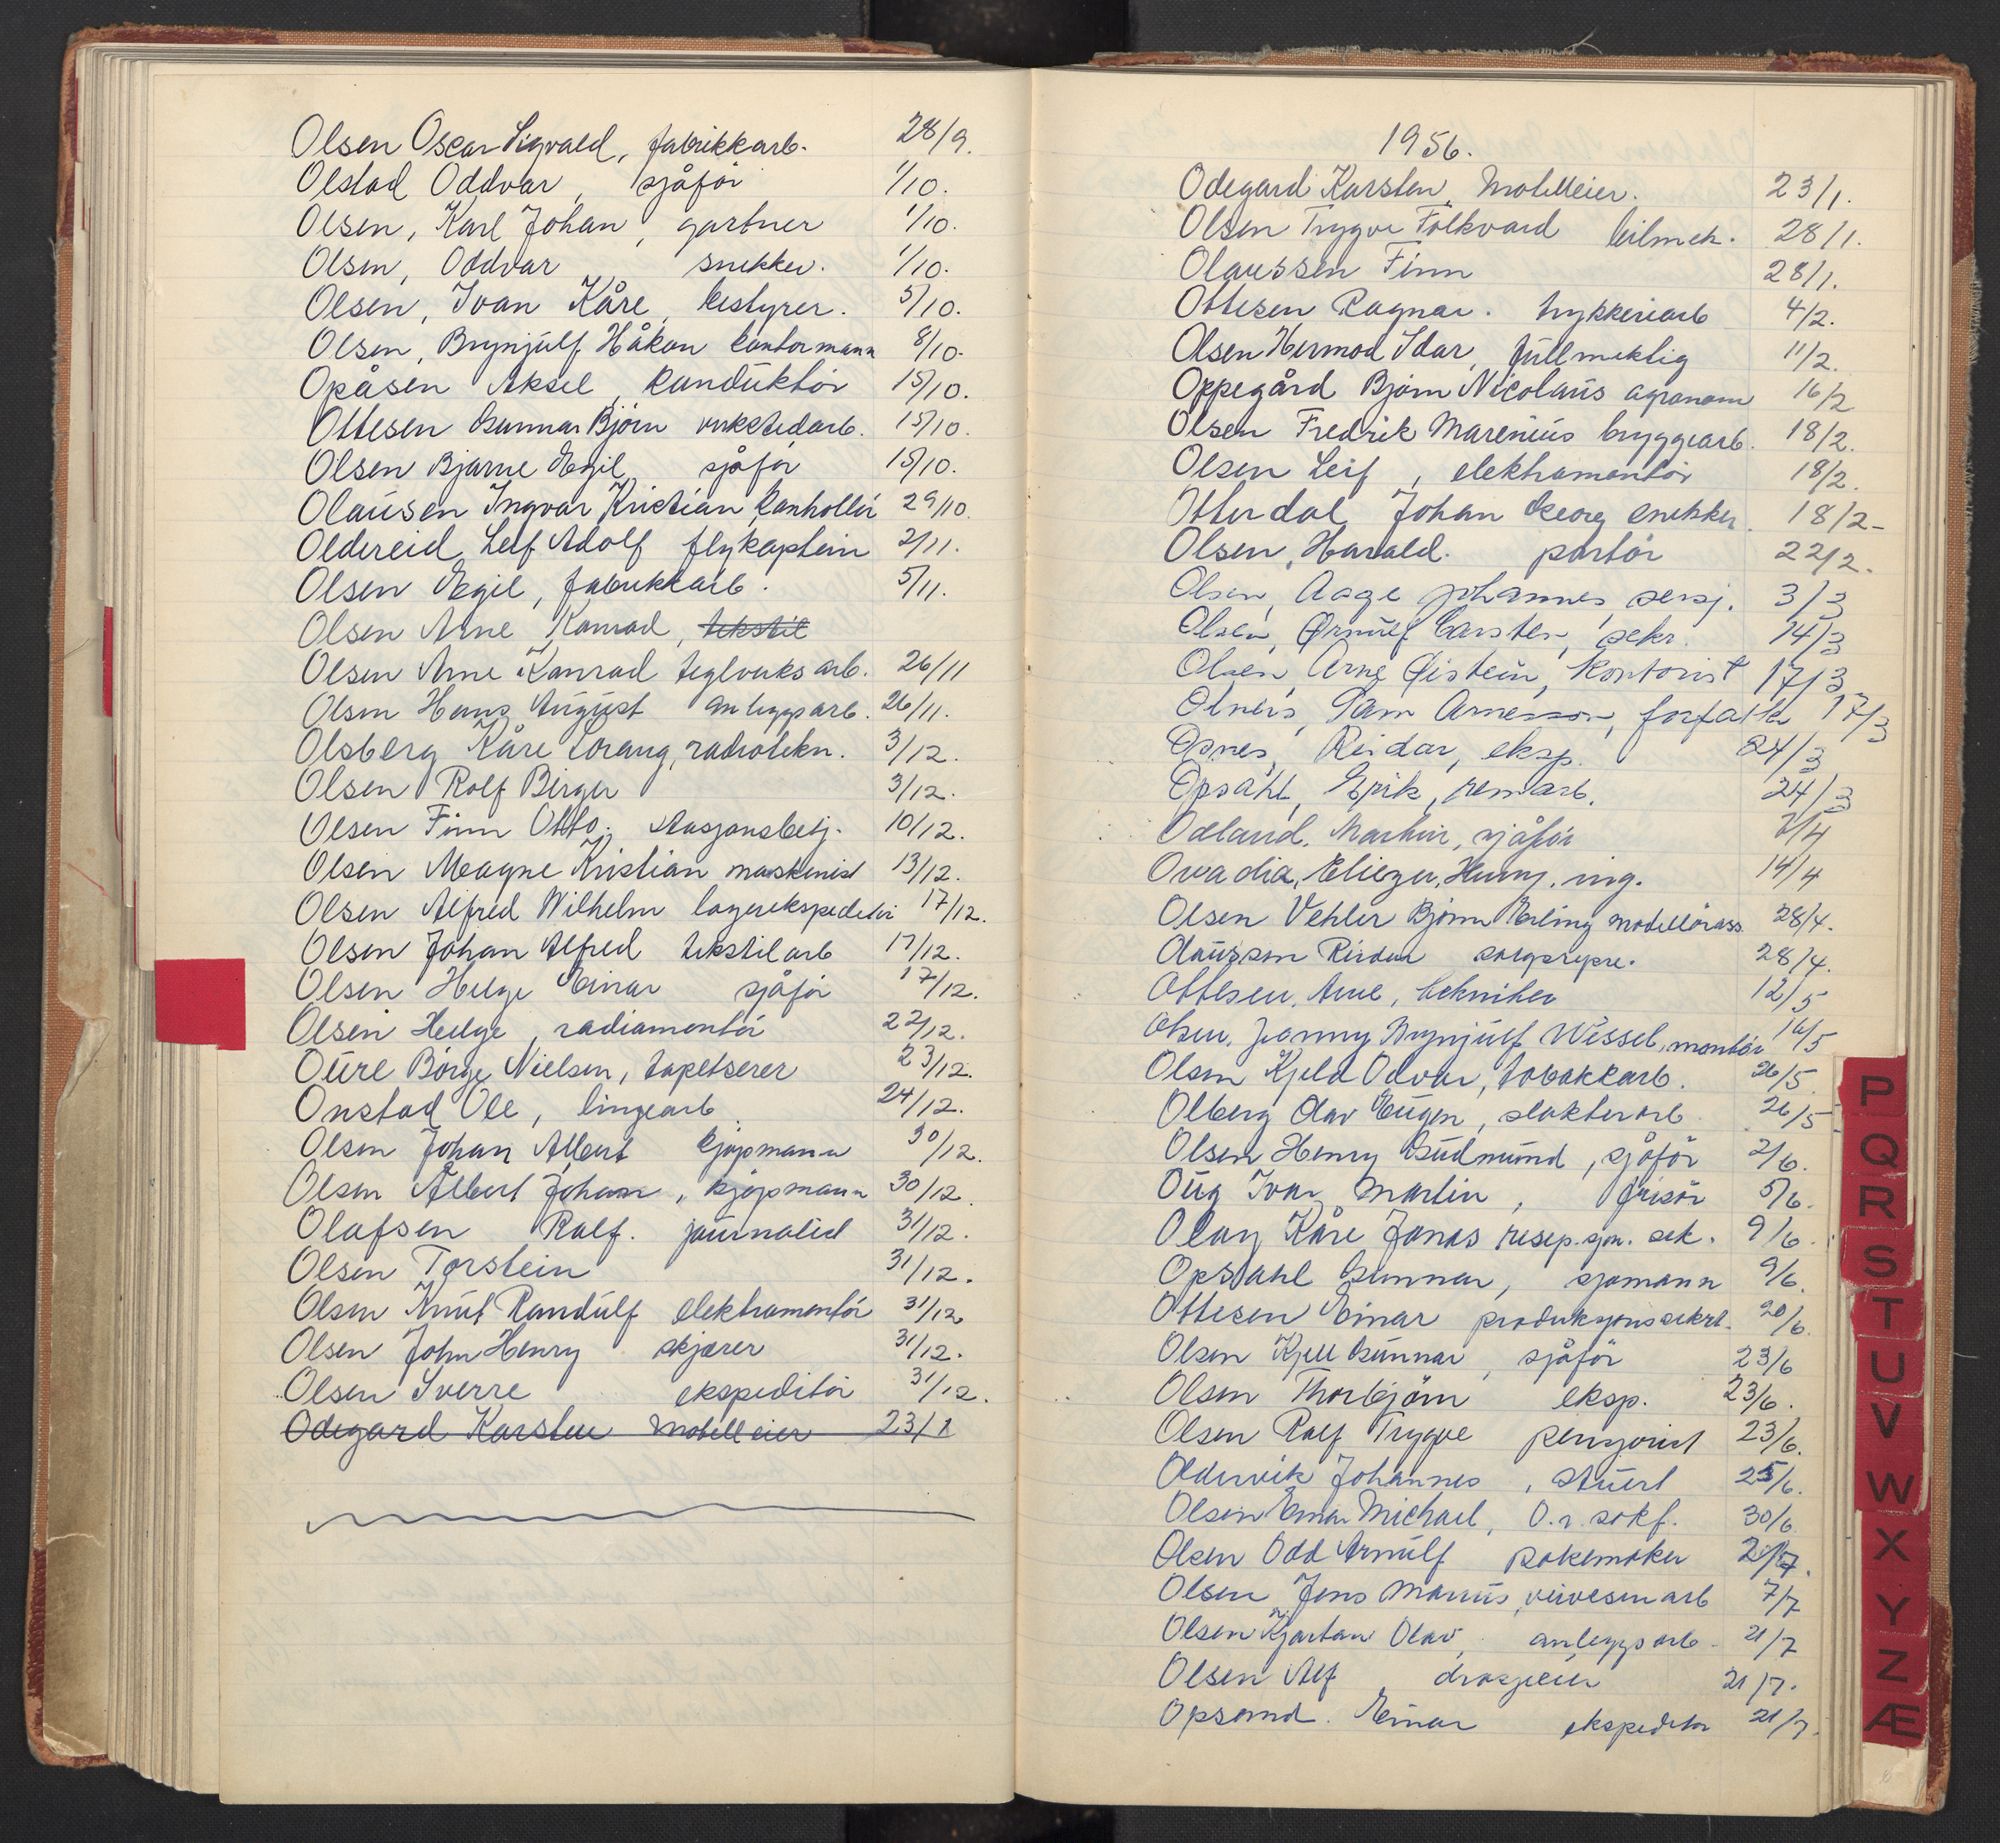 Olsen Oscar Sigvald, fabrikkarb. 28/9.
Olstad Oddvar, sjåför 1/10.
Olsen, Karl Johan, gartner 1/10.
Olsen, Oddvar snekker. 1/10.
Olsen, Ivan Kåre, bestyrer. 5/10.
Olsen, Brynjulf Håkon kontormann 8/10.
Opåsen Aksel, konduktör 15/10.
Ottesen Gunnar Björn verkstedarb. 15/10.
Olsen Bjarne Egil, sjåför 15/10.
Olausen Ingvar Kristian kontrollör 29/10.
Oldereid, Leif Adolf flykaptein 2/11.
Olsen Egil, fabrikkarb. 5/11.
Olsen Arne Konrad, tekstil
Olsen Arne Konrad teglverksarb. 26/11
Olsen Hans August anleggsarb. 26/11.
Olsberg Kåre Lorang, radiotekn. 3/12.
Olsen Rolf Birger 3/12.
Olsen Finn Otto. stasjonsbetj. 10/12.
Olsen Magne Kristian maskinist 13/12.
Olsen Alfred Wilhelm lagerekspeditör 17/12.
Olsen Johan Alfred tekstilarb 17/12.
Olsen Helge Einar sjåför 17/12.
Olsen Helge, radiomontör 22/12.
Oure Börge Nielsen, tapetserer 23/12.
Onstad Ole, linjearb 24/12.
Olsen Johan Albert kjöpmann 30/12.
Olsen Albert Johan, kjöpmann 30/12.
Olafsen Rolf. journalist 31/12.
Olsen Torstein 31/12.
Olsen Knut Randulf elektromontör 31/12
Olsen John Henry skjærer 31/12.
Olsen Sverre ekspeditör 31/12.
Odegard Karsten Motelleier 23/1
1956.
Odegard Karsten, Motelleier. 23/1.
Olsen Trygve Folkvard bilmek. 28/1.
Olaussen Finn 28/1.
Ottesen Ragnar. trykkeriarb 4/2.
Olsen Hermod Idar, fullmektig 11/2.
Oppegård Björn Nicolaus agronom 16/2
Olsen Fredrik Marenius bryggearb. 18/2.
Olsen Leif, elektromontör 18/2.
Otterdal Johan Georg snekker. 18/2-
Olsen, Harald. portör 22/2.
Olsen, Aage Johannes, sersj. 3/3
Olsen, Ørnulf Carsten, sekr. 14/3
Olsen, Arne Øistein, Kontorist 17/3
Sam Arnesson, forfatter 17/3
Osnes, Reidar, eksp. 24/3
Opsahl, Erik, remarb. 24/3
Odland, Martin, sjåför /4
Ovadia, Eliezer, Henry, ing. 14/4
Olsen Vehler Björn Erling modellörass 28/4.
Olausson Reidar 28/4.
Ottesen, Arne, tekniker 12/5
Olsen, Jonny Brynjulf Wessel, montör 16/5
Olsen Kjeld Odvar, tobakkarb. 26/5.
Olberg Olav Eugen, slakterarb 26/5
Olsen Henry Gudmund, sjåför 2/6.
Oug Ivar Martin, frisör 5/6.
Olay Kåre Jonas resep.sjon. sek. 9/6.
Opsahl Gunnar, sjömann 9/6.
Ottesen Einar produksjonssekret. 20/6.
Olsen Kjell Gunnar, sjåför 23/6
Olsen Thorbjörn eksp. 23/6.
Olsen Rolf Trygve pensjonist 23/6.
Oldervik Johannes, stuert 25/6.
Olsen Einar Michael, O.r.sakf. 30/6.
Olsen Odd Arnulf pakemaker /7.
Olsen Jens Marius, veivesenarb 7/7
Olsen Kjartan Olav, anleggsarb 21/7
Olsen Alf, drosjeeier 21/7.
Opsand. Einar ekspeditör 21/7.
P
Q
R
S
T
U
V
W
X
Y
Z
Æ